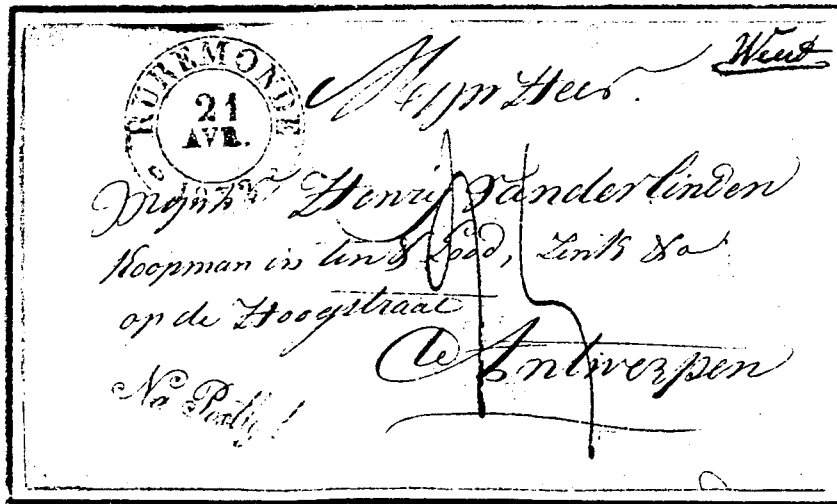 RUREMONDE
21
AVR.
Weert
Mynheer
Mynhr Henri Vanderlinden
Koopman in tin & Lood, Zink &a
op de Hoogstraat
te Antwerpen